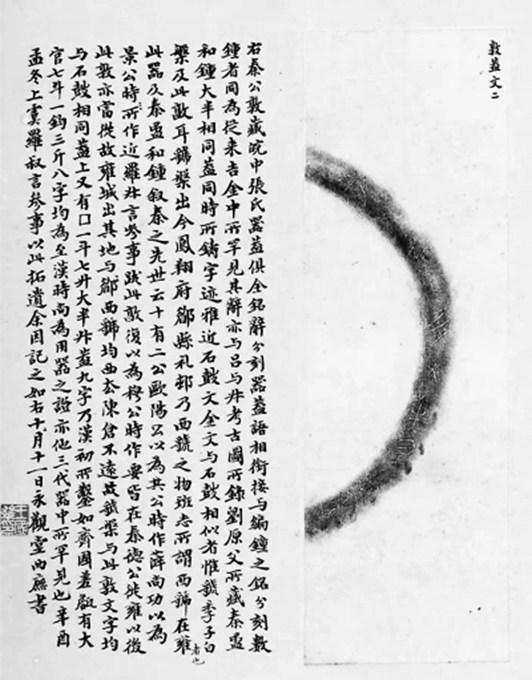 敦蓋文二
右秦公敦藏皖中張氏器蓋俱全銘辭分刻器蓋語相銜接与編鐘之銘分刻數
鐘者同為從来吉金中所罕見其辭亦与吕与叔考古圖所錄劉原父所藏秦盄
和鐘大半相同蓋同時所鑄字迹雅近石鼓文金文与石鼓相似者惟虢季子白
槃及此敦耳虢槃出今鳳翔府郿縣礼邨乃西虢之物班志所謂西虢在雍者也
此器及秦盄和鐘叙秦之先世云十有二公歐陽公以為共公時作薛尚功以為
景公時所作近羅叔言參事跋此敦復以為穆公時作要皆在秦德公徙雍以後
此敦亦當從故雍城出其地与郿西虢均西去陳倉不遠故虢槃与此敦文字均
与石鼓相同蓋上又有口一斗七升大半升蓋九字乃漢初所鑿如齊國差有大
官七斗一鈞三斤八字均為至漢時尚為用器之證亦他三代器中所罕見也辛酉
孟冬上虞羅叔言參事以此拓遺余因記之如右十月十一日永觀堂西廡書